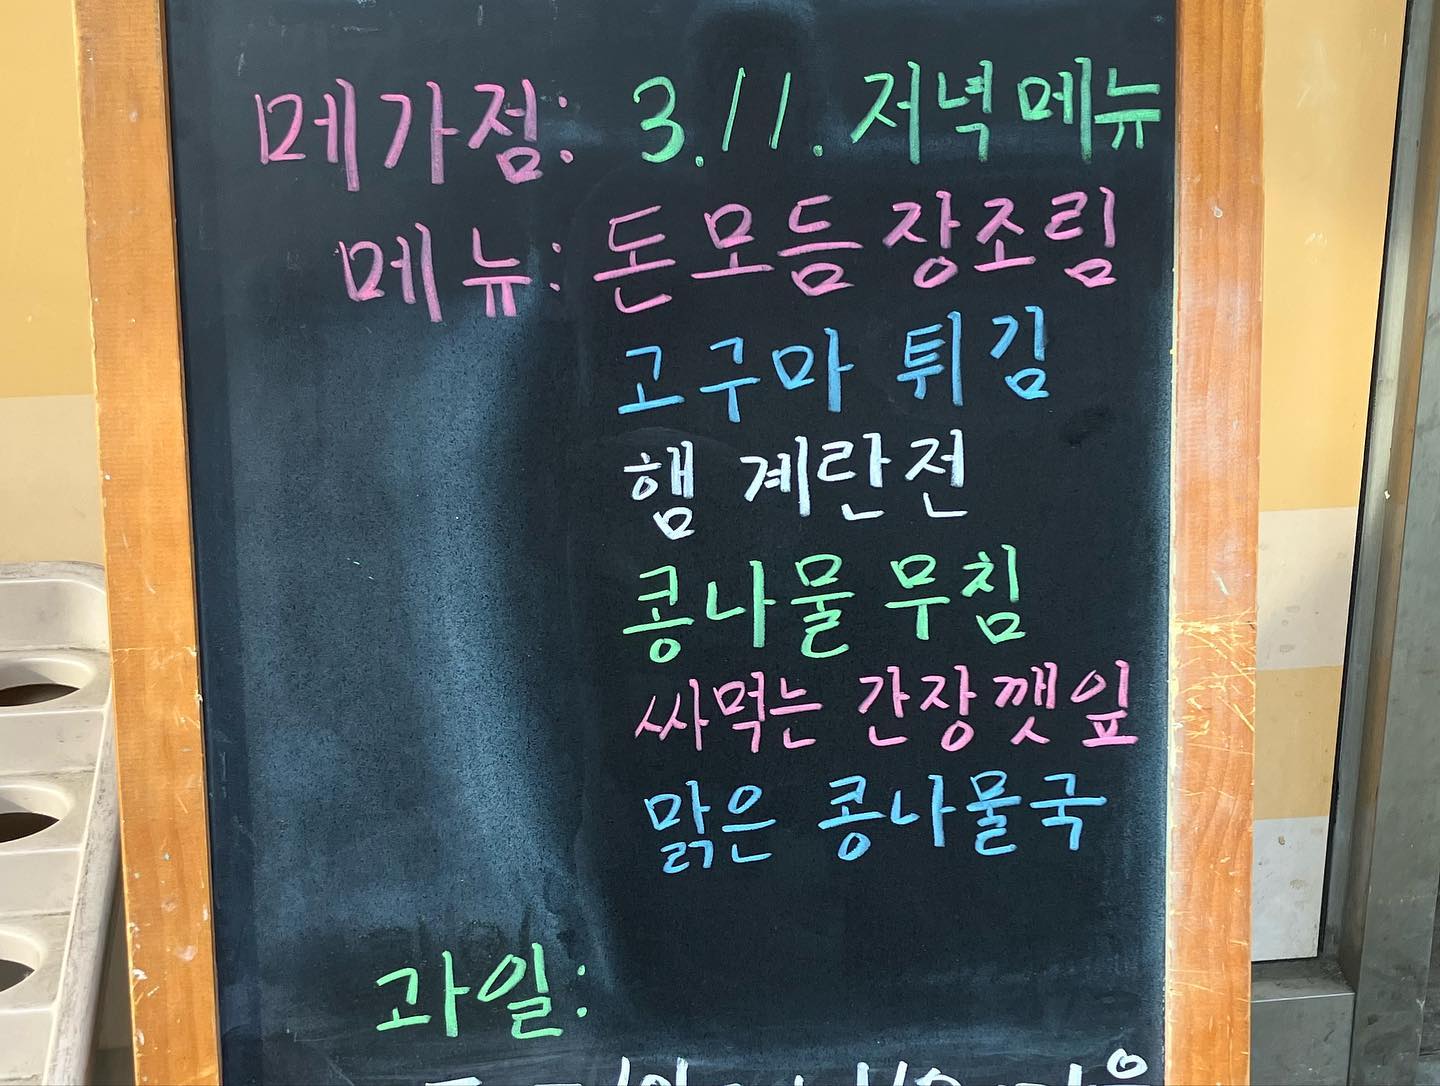 메가점: 3.11. 저녁메뉴
메뉴: 돈모듬장조림
고구마 튀김
햄 계란전
콩나물무침
싸먹는 간장깻잎
맑은 콩나물국
과일: